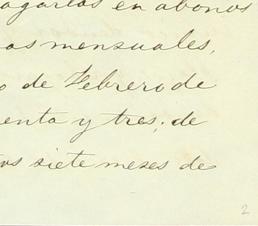 agarlos en abonos
os mensuales,
o de Febrero de
enta y tres; de
tos siete meses de
2